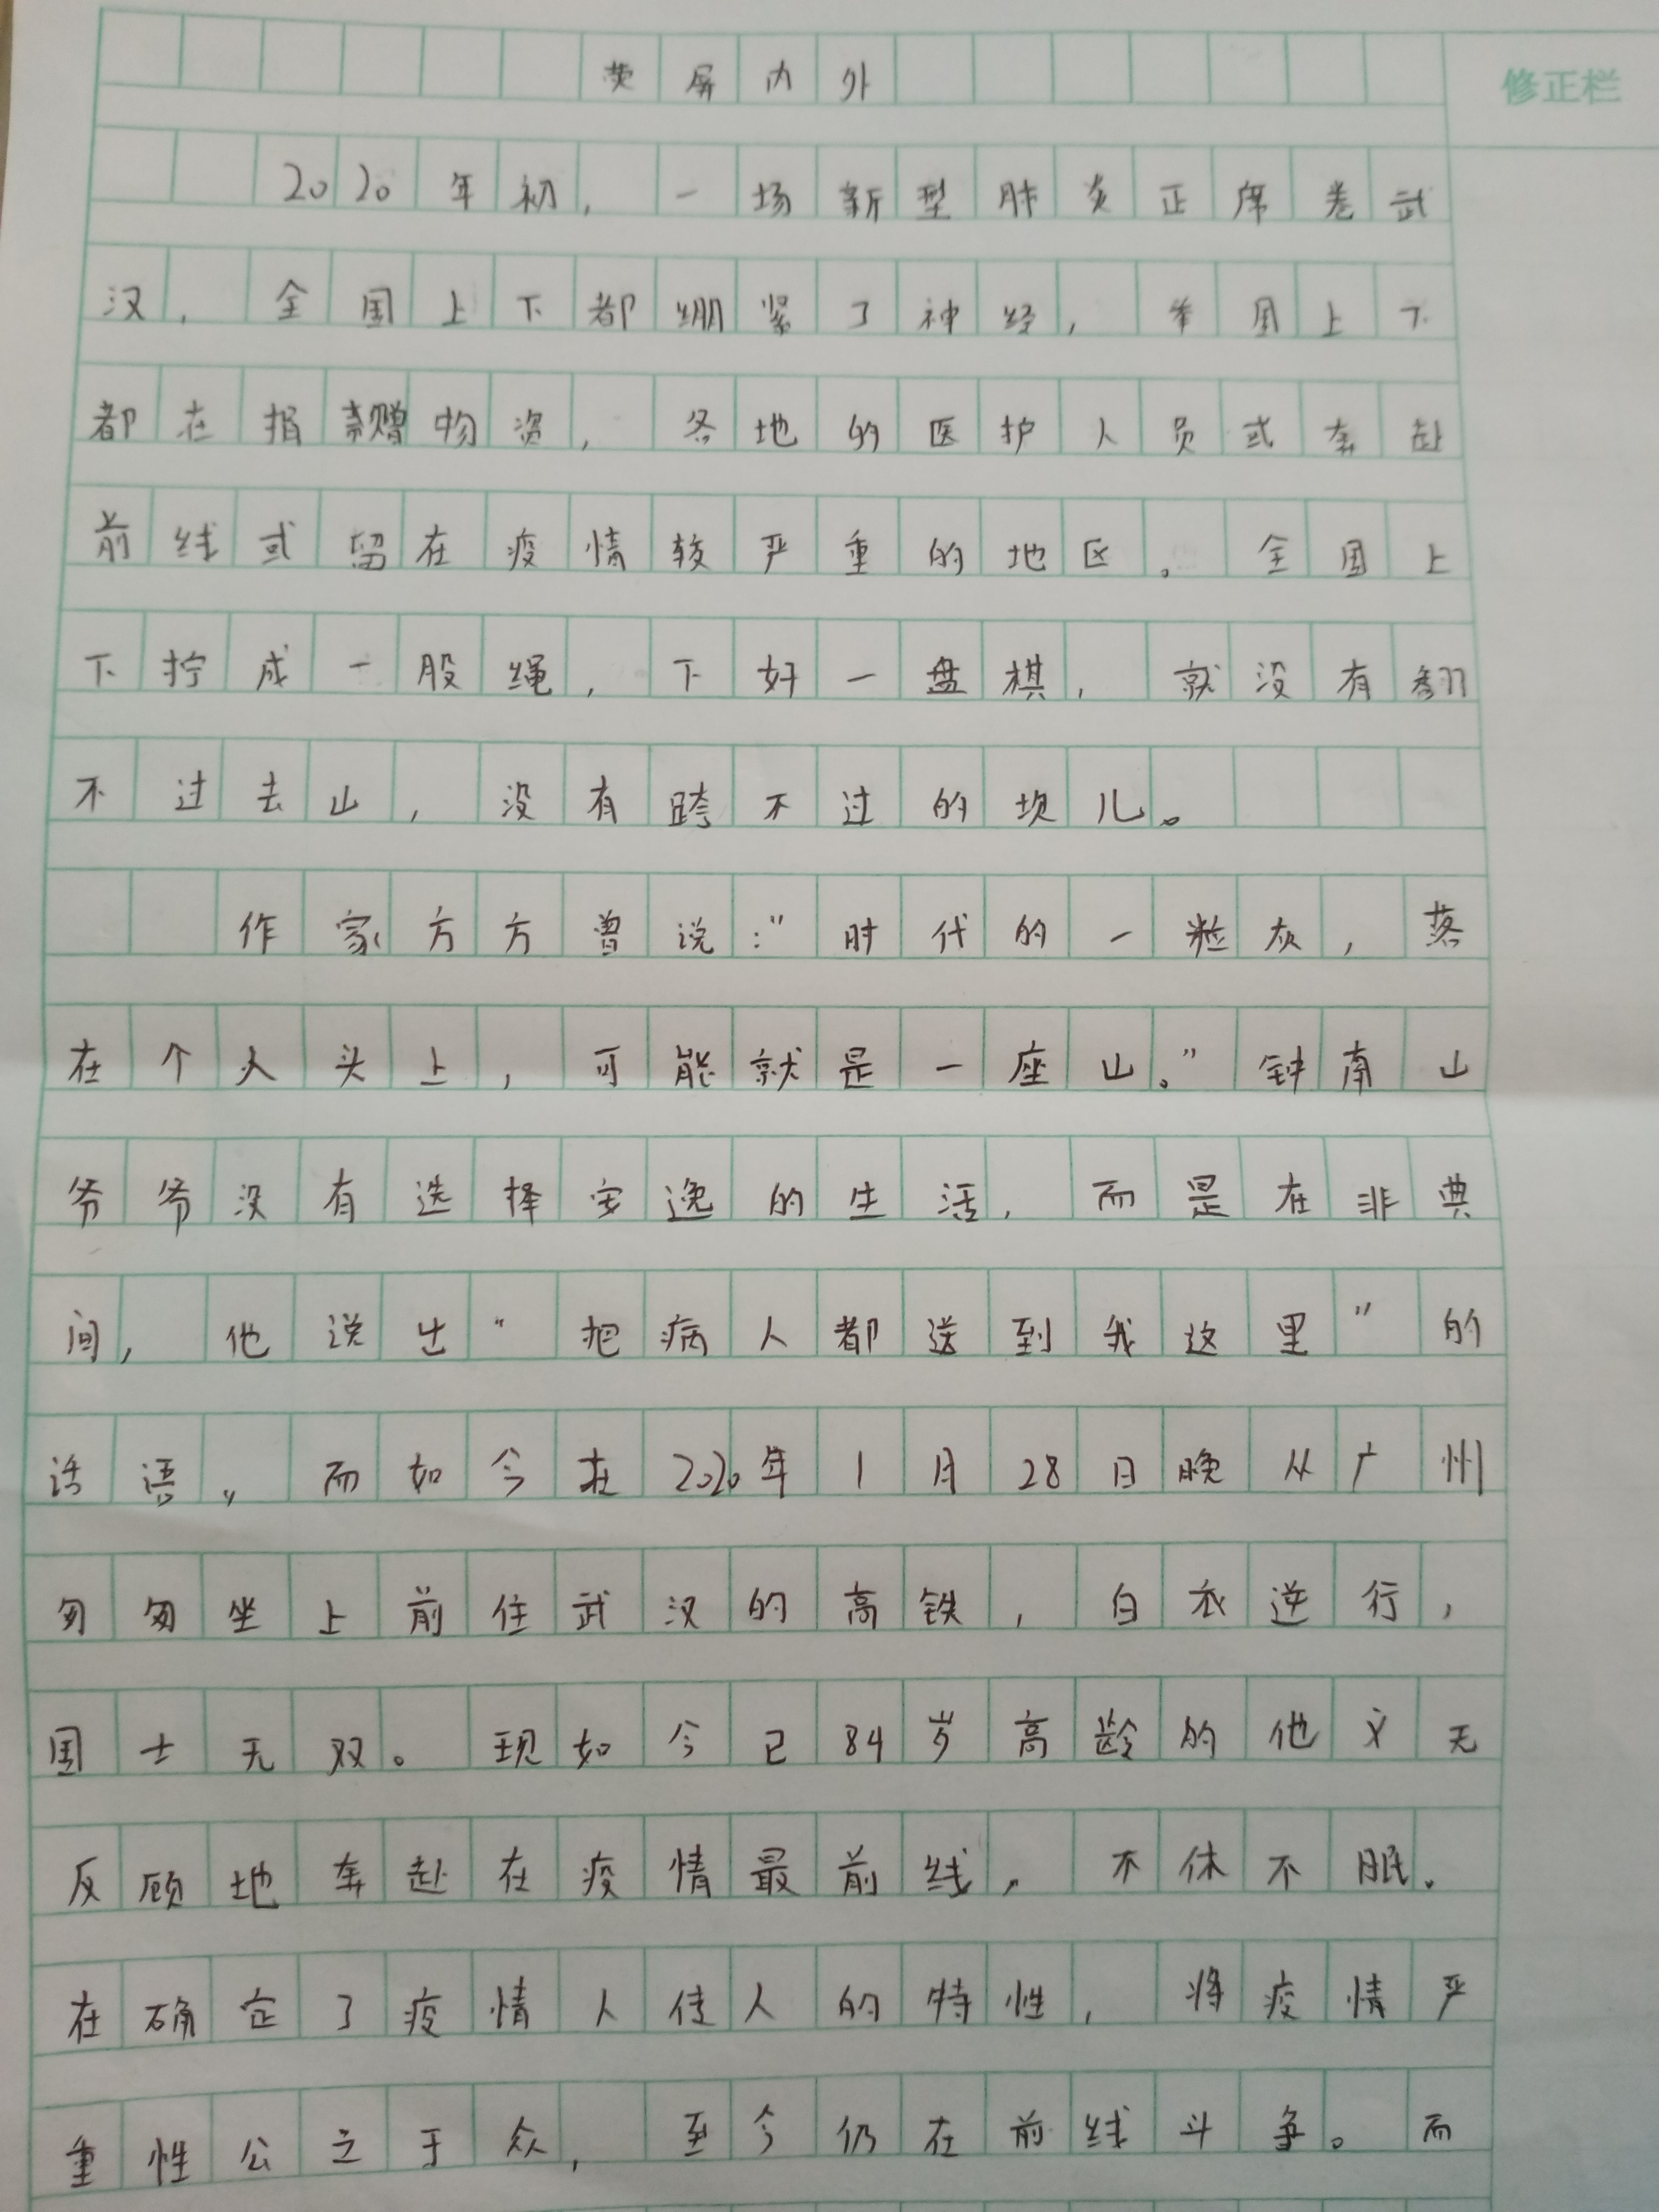 荧屏内外
修正栏
2020年初，一场新型肺炎正席卷武
汉，全国上下都绷紧了神经，举国上下
都在捐款赠物资，各地的医护人员或奔赴
前线或留在疫情较严重的地区。全国上
下拧成一股绳，下好一盘棋，就没有翻
不过去山，没有跨不过的坎儿。
作家方方曾说："时代的一粒灰，落
在个人头上，可能就是一座山。"钟南山
爷爷没有选择安逸的生活，而是在非典
间，他说出"把病人都送到我这里"的
话语，而如今在2020年1月28日晚从广州
匆匆坐上前往武汉的高铁，白衣逆行，
国士无双。现如今已84岁高龄的他义无
反顾地奔赴在疫情最前线，不休不眠。
在确定了疫情人传人的特性，将疫情严
重性公之于众，至今仍在前线斗争。而